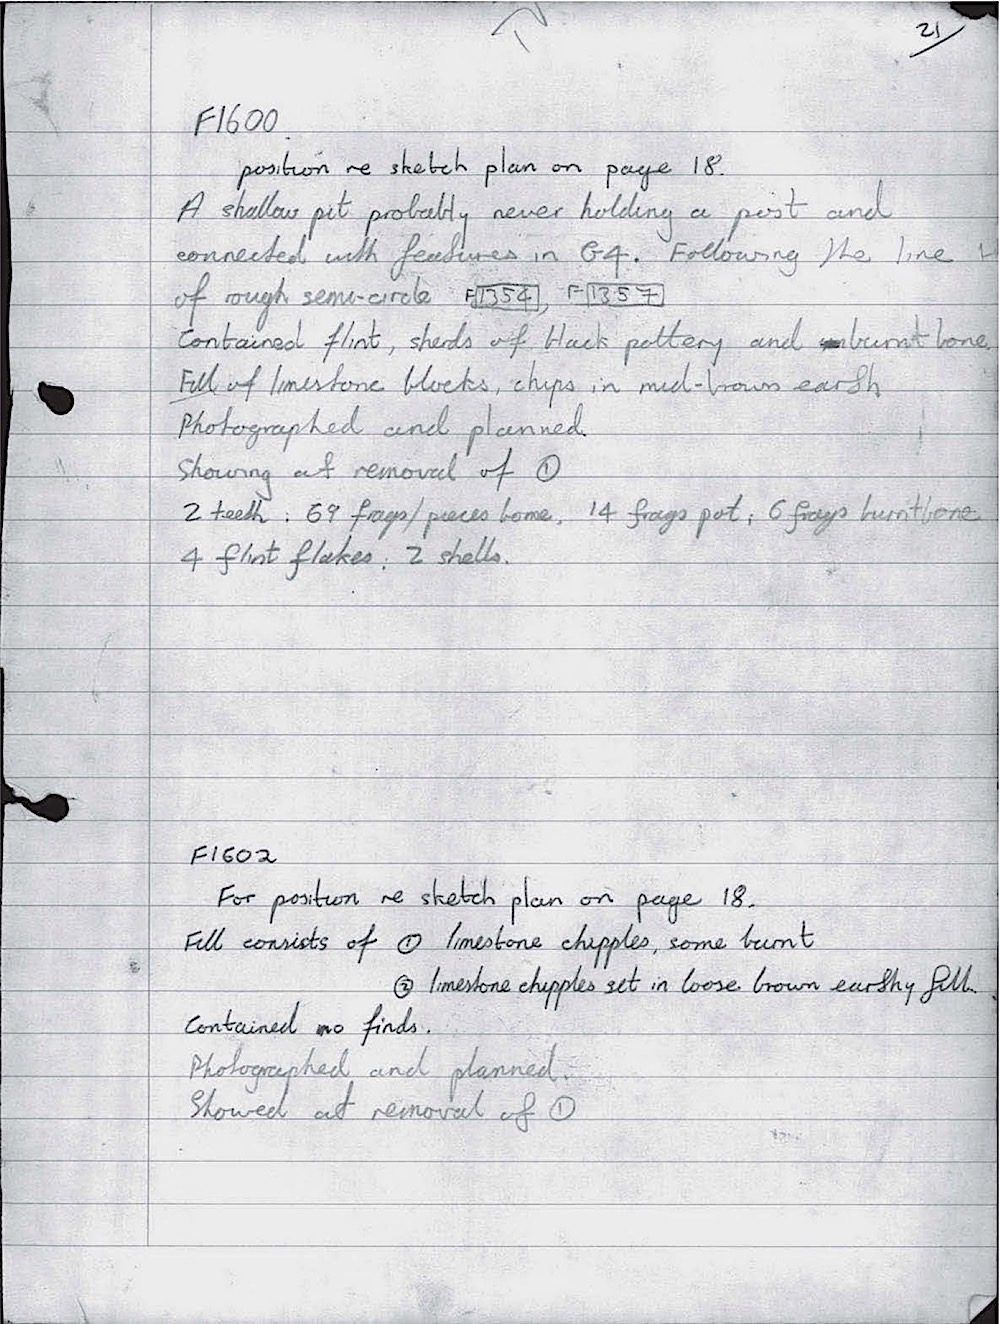 21
F1600
position re sketch plan on page 18.
A shallow pit probably never holding a post and
connected with features in G4. Following the line
of rough semi-circle F1354, F1357
Contained flint, sherds of black pottery and burnt bone.
Fill of limestone blocks, chips in mid-brown earth
Photographed and planned.
Showing at removal of ①
2 teeth; 69 frags/pieces bone, 14 frags pot; 6 frags burnt bone
4 flint flakes; 2 shells.
F1602
For position re sketch plan on page 18.
Fill consists of ① limestone chipples, some burnt
② limestone chipples set in loose brown earthy fill.
Contained no finds.
Photographed and planned.
Showed at removal of ①